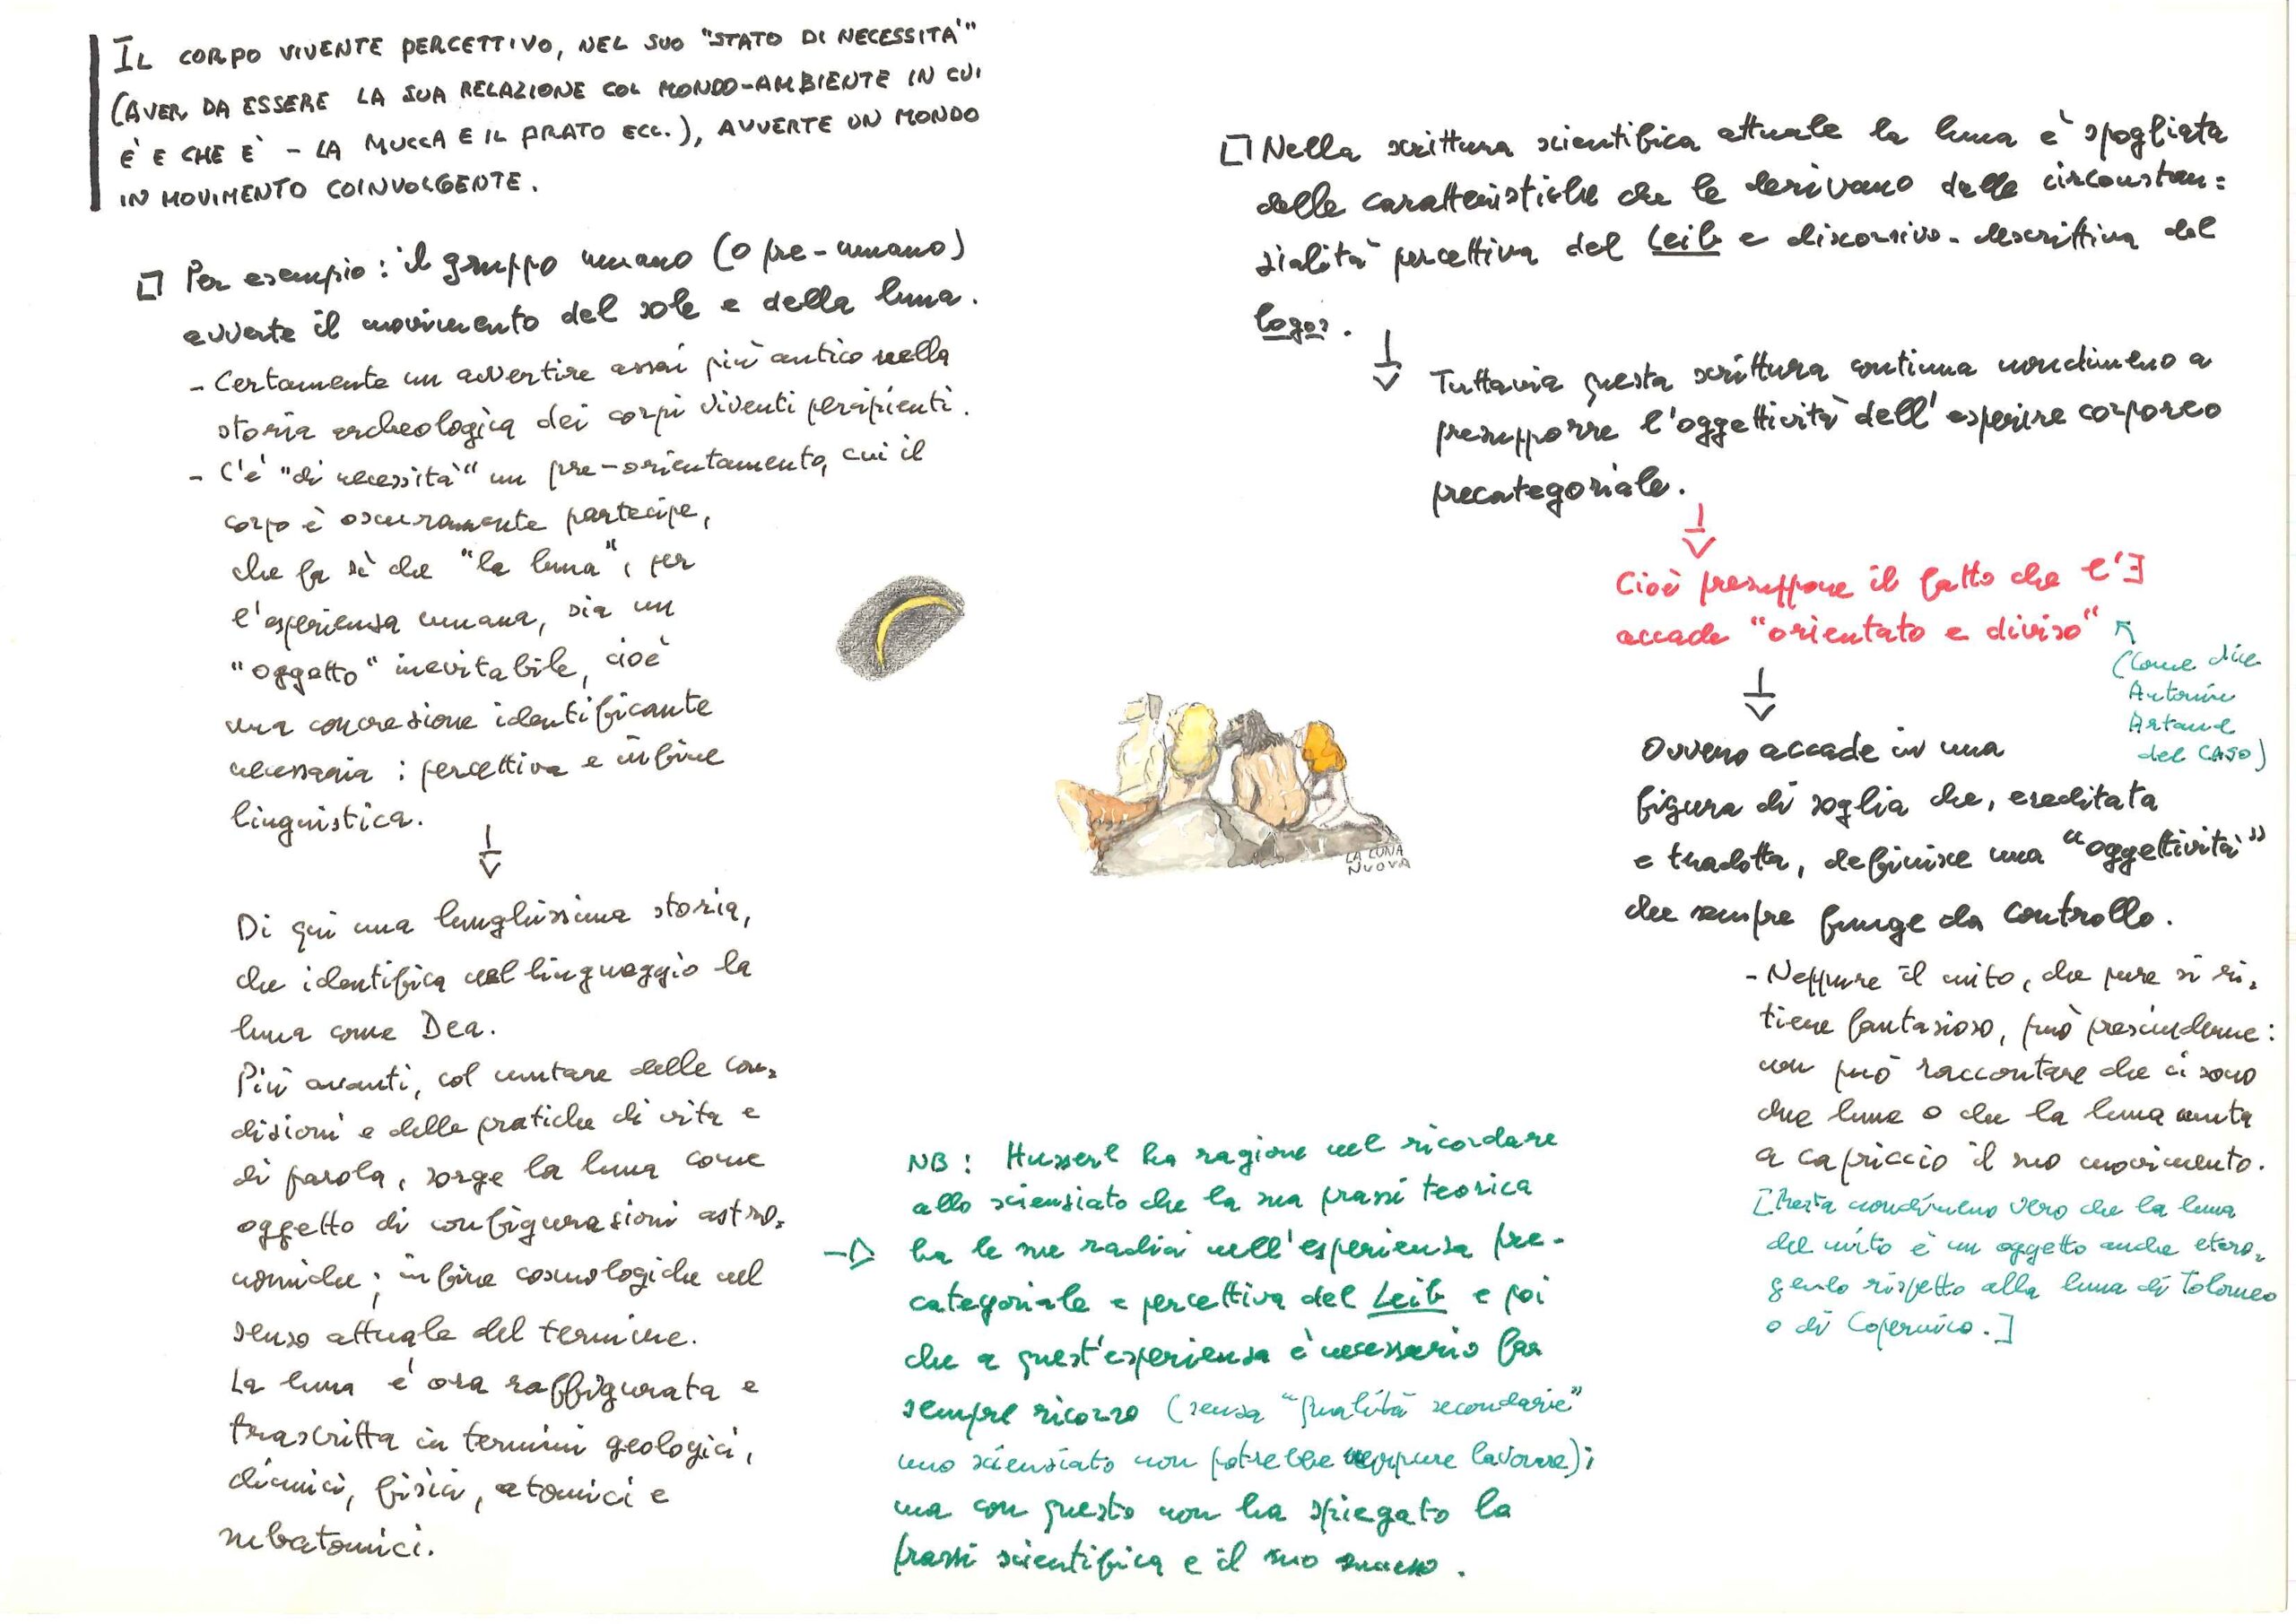 IL CORPO VIVENTE PERCETTIVO, NEL SUO "STATO DI NECESSITÀ"
(AVER DA ESSERE LA SUA RELAZIONE COL MONDO-AMBIENTE IN CUI
È E CHE È - LA MUCCA E IL PRATO ECC.), AVVERTE UN MONDO
IN MOVIMENTO COINVOLGENTE.
Per esempio: il gruppo umano (o pre-umano)
avverte il movimento del sole e della luna.
- Certamente un avvertire assai più antico nella
storia archeologica dei corpi viventi percipienti.
- C'è "di necessità" un pre-orientamento, cui il
corpo è oscuramente partecipe,
che fa sì che "la luna", per
l'esperienza umana, sia un
"oggetto" inevitabile, cioè
una concrezione identificante
necessaria: percettiva e infine
linguistica.
Di qui una lunghissima storia,
che identifica nel linguaggio la
luna come Dea.
Più avanti, col mutare delle con=
dizioni e delle pratiche di vita e
di parola, sorge la luna come
oggetto di configurazioni astro=
nomiche; infine cosmologiche nel
senso attuale del termine.
La luna è ora raffigurata e
trascritta in termini geologici,
chimici, fisici, atomici e
subatomici.
LA LUNA
NUOVA
NB: Husserl ha ragione nel ricordare
allo scienziato che la sua prassi teorica
ha le sue radici nell'esperienza pre-
categoriale e percettiva del Leib e poi
che a quest'esperienza è necessario far
sempre ricorso (senza "qualità secondarie"
uno scienziato non potrebbe neppure lavorare);
ma con questo non ha spiegato la
prassi scientifica e il suo successo.
Nella scrittura scientifica attuale la luna è spogliata
delle caratteristiche che le derivano dalle circostan=
zialità percettiva del Leib e discorsivo-descrittiva del
logos.
Tuttavia questa scrittura continua nondimeno a
presupporre l'oggettività dell'esperire corporeo
precategoriale.
Cioè presuppone il fatto che l'∃
accade "orientato e diviso"
(Come dice
Antonin
Artaud
del CASO)
Ovvero accade in una
figura di soglia che, ereditata
e tradotta, definisce una "oggettività"
che sempre funge da controllo.
- Neppure il mito, che pure si ri=
tiene fantasioso, può prescinderne:
non può raccontare che ci sono
due lune o che la luna muta
a capriccio il suo movimento.
[Resta nondimeno vero che la luna
del mito è un oggetto anche etero=
geneo rispetto alla luna di Tolomeo
o di Copernico.]